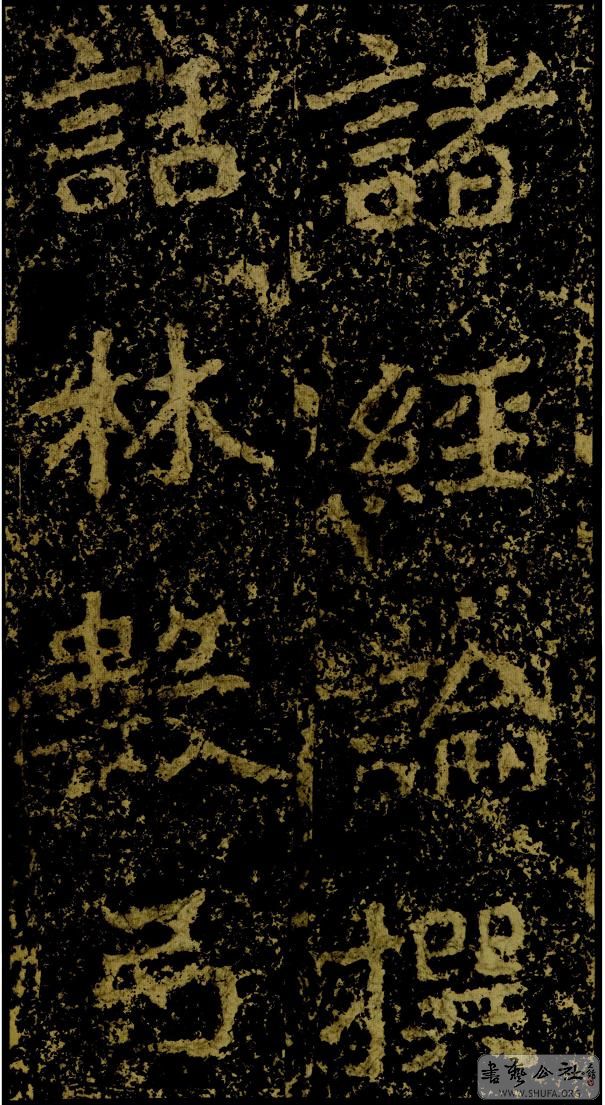 諸經論撰
話林數百
書藝公社
WWW.SHUFA.ORG